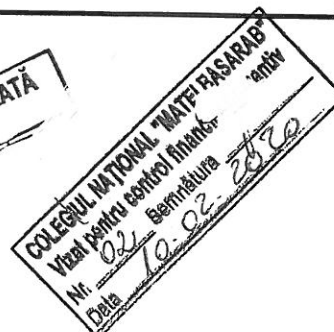 ATĂ
COLEGIUL NAȚIONAL "MATEI BASARAB"
Vizat pentru control financ antiv
Nr. 02 Semnătura
Data 10-02-2020